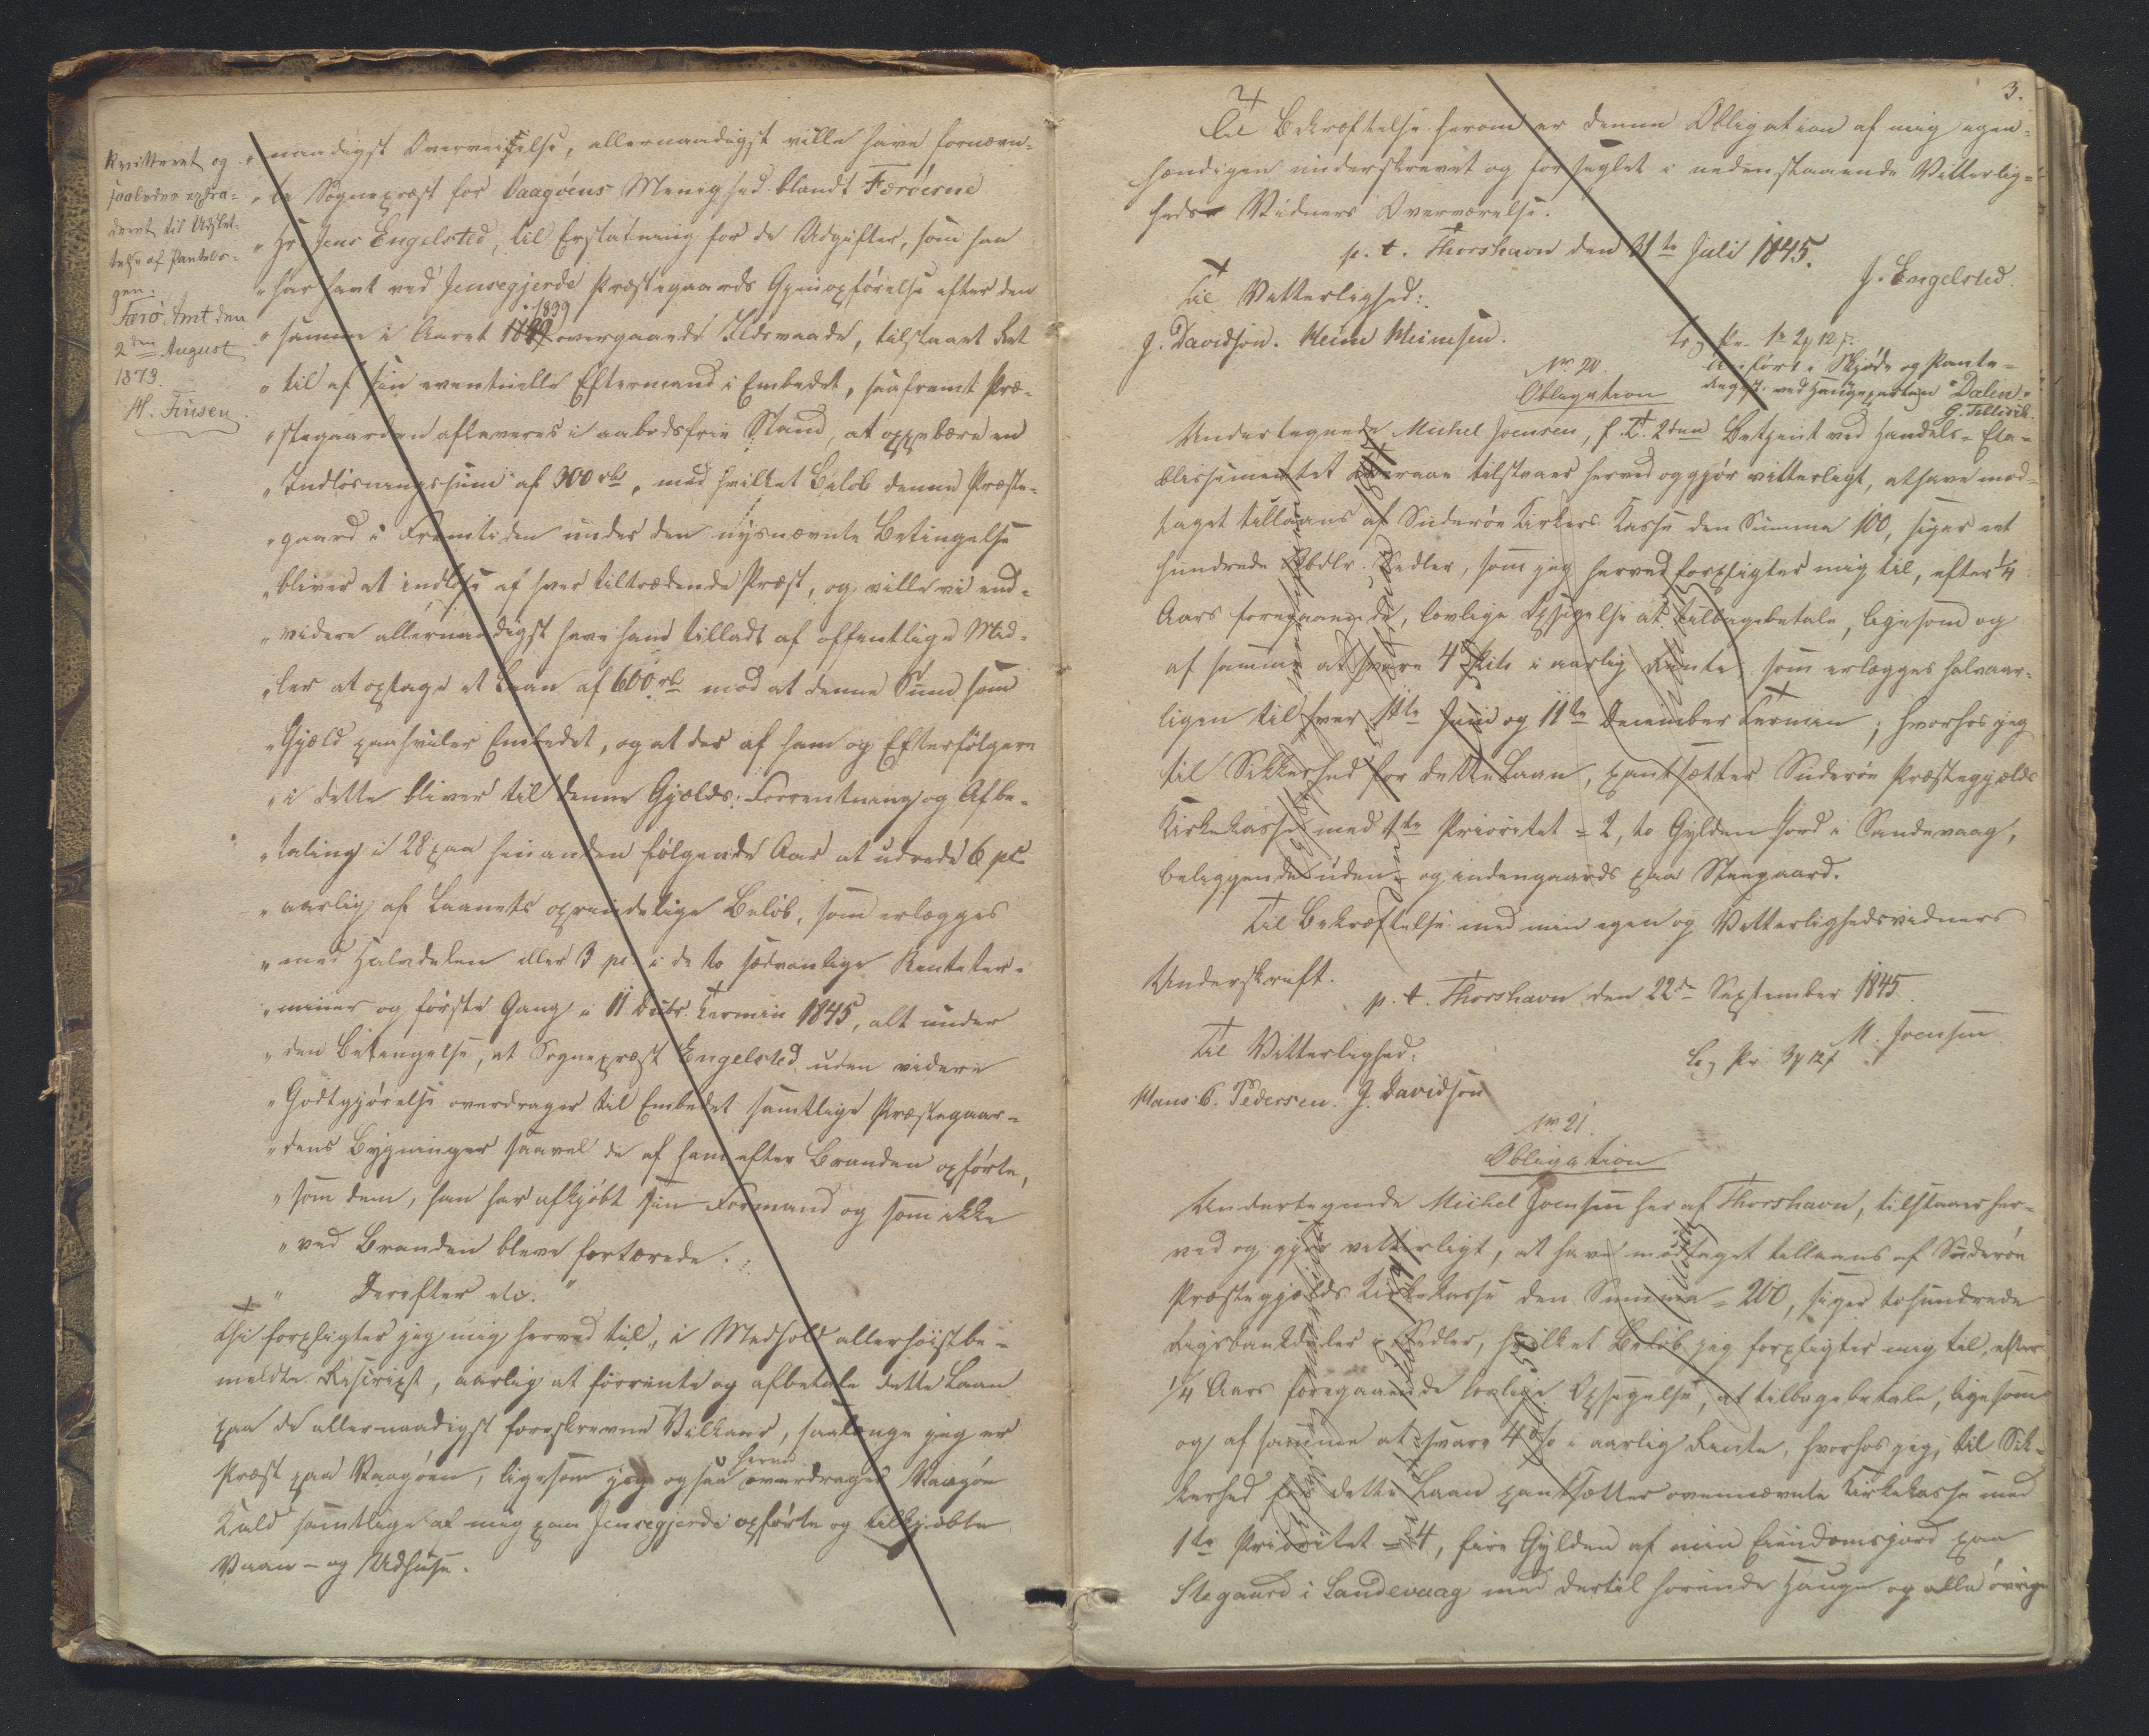 Kvitteret og
saaledes extra-
deret til Udslet-
telse af Pantebo-
gen.
Færö Amt den
2den August
1873.
H. Finsen.
„naadigst Overveielse, allernaadigst ville have fornævn-
„te Sognepræst for Vaagöens Menighed blandt Færöerne
„Hr. Jens Engelsted, til Erstatning for de Udgifter, som han
„har havt ved Jensegjerde Præstegaards Gjenopförelse efter den
„samme i Aaret 1839 overgaaede Ildsvaade, tilstaaet Ret
„til af sin eventuelle Eftermand i Embedet, saafremt Præ-
„stegaarden afleveres i aabodsfrie Stand, at oppebære en
„Indlösningssum af 300 rbd, med hvilket Belöb denne Præste-
„gaard i Fremtiden under den nysnævnte Betingelse
„bliver at indlöse af hver tiltrædende Præst, og ville vi end-
„videre allernaadigst have ham tilladt af offentlige Mid-
„ler at optage et Laan af 600 rbd mod at denne Sum som
„Gjæld paahviler Embedet, og at der af ham og Efterfölgere
„i dette bliver til denne Gjælds Forrentning og Afbe-
„taling i 28 paa hinanden fölgende Aar at udrede 6 pc
„aarlig af Laanets oprindelige Belöb, som erlægges
„med Halvdelen eller 3 pc. i de to sædvanlige Renteter-
„miner og förste Gang i 11 Decbr. Termin 1845, alt under
„den Betingelse, at Sognepræst Engelsted uden videre
„Godtgjörelse overdrager til Embedet samtlige Præstegaar-
„dens Bygninger saavel de af ham efter Branden opförte,
„som dem, han har afkjöbt sin Formand og som ikke
„ved Branden bleve fortærede.
„ Derefter etc. “
Thi forpligter jeg mig herved til, i Medhold allerhöistbe-
meldte Rescript, aarlig at forrente og afbetale dette Laan
paa de allernaadigst foreskrevne Vilkaar, saalænge jeg er
Præst paa Vaagöen, ligesom jeg ogsaa herved overdrager Vaagöe
Kald samtlige af mig paa Jensegjerde opförte og tilkjöbte
Vaan- og Udhuse.
3.
Til Bekræftelse herom er denne Obligation af mig egen-
hændigen underskrevet og forseglet i nedenstaaende Vitterlig-
heds- Vidners Overværelse.
p. t. Thorshavn den 31te Juli 1845.
J. Engelsted.
Til Vitterlighed:
J. Davidson. Heine Heinesen.
No 20.
Anfört i Skjöde og Pante-
ved Haugeparten "Dalen"
G. Tillisch.
Obligation
Undertegnede Michel Joensen, f. T. 2den Betjent ved Handels-Eta-
blissementet tilstaaer herved og gjör vitterligt, at have mod-
taget tillaans af Süderöe Kirkers Kasse den Summa 100, siger eet
hundrede Rbdlr. Sedler, som jeg herved forpligter mig til, efter 1/4
Aars foregaaende, lovlige Opsigelse at tilbagebetale, ligesom og
af samme at svare 4 i aarlig Rente, som erlægges halvaar-
ligen til hver 11te Juni og 11te December Termin; hvorhos jeg
til Sikkerhed for dette Laan, pantsætter Süderöe Præstegjælds
Kirkekasse med 1te Prioritet = 2, to Gylden Jord i Sandevaag,
beliggende uden- og indengaards paa Steegaard.
Til Bekræftelse med min egen og Vitterlighedsvidners
Underskrift.
p. t. Thorshavn den 22de September 1845.
M. Joensen
Til Vitterlighed:
Hans C. Pedersen. J. Davidson
No 21.
Obligation
Undertegnede Michel Joensen her af Thorshavn, tilstaaer her-
ved og gjör vitterligt, at have modtaget tillaans af Süderöe
Præstegjælds Kirkekasse den Summa = 200, siger tohundrede
Rigsbankdaler i Sedler, hvilket Belöb jeg forpligter mig til, efter
1/4 Aars foregaaende lovlige Opsigelse, at tilbagebetale, ligesom
og af samme at svare 4 % i aarlig Rente, hvorhos jeg, til Sik-
kerhed for dette Laan pantsætter ovennævnte Kirkekasse med
1te Prioritet = 4, fire Gylden af min Eiendomsjord paa
Stegaard i Sandevaag med dertil hörende Hauge og alle övrige